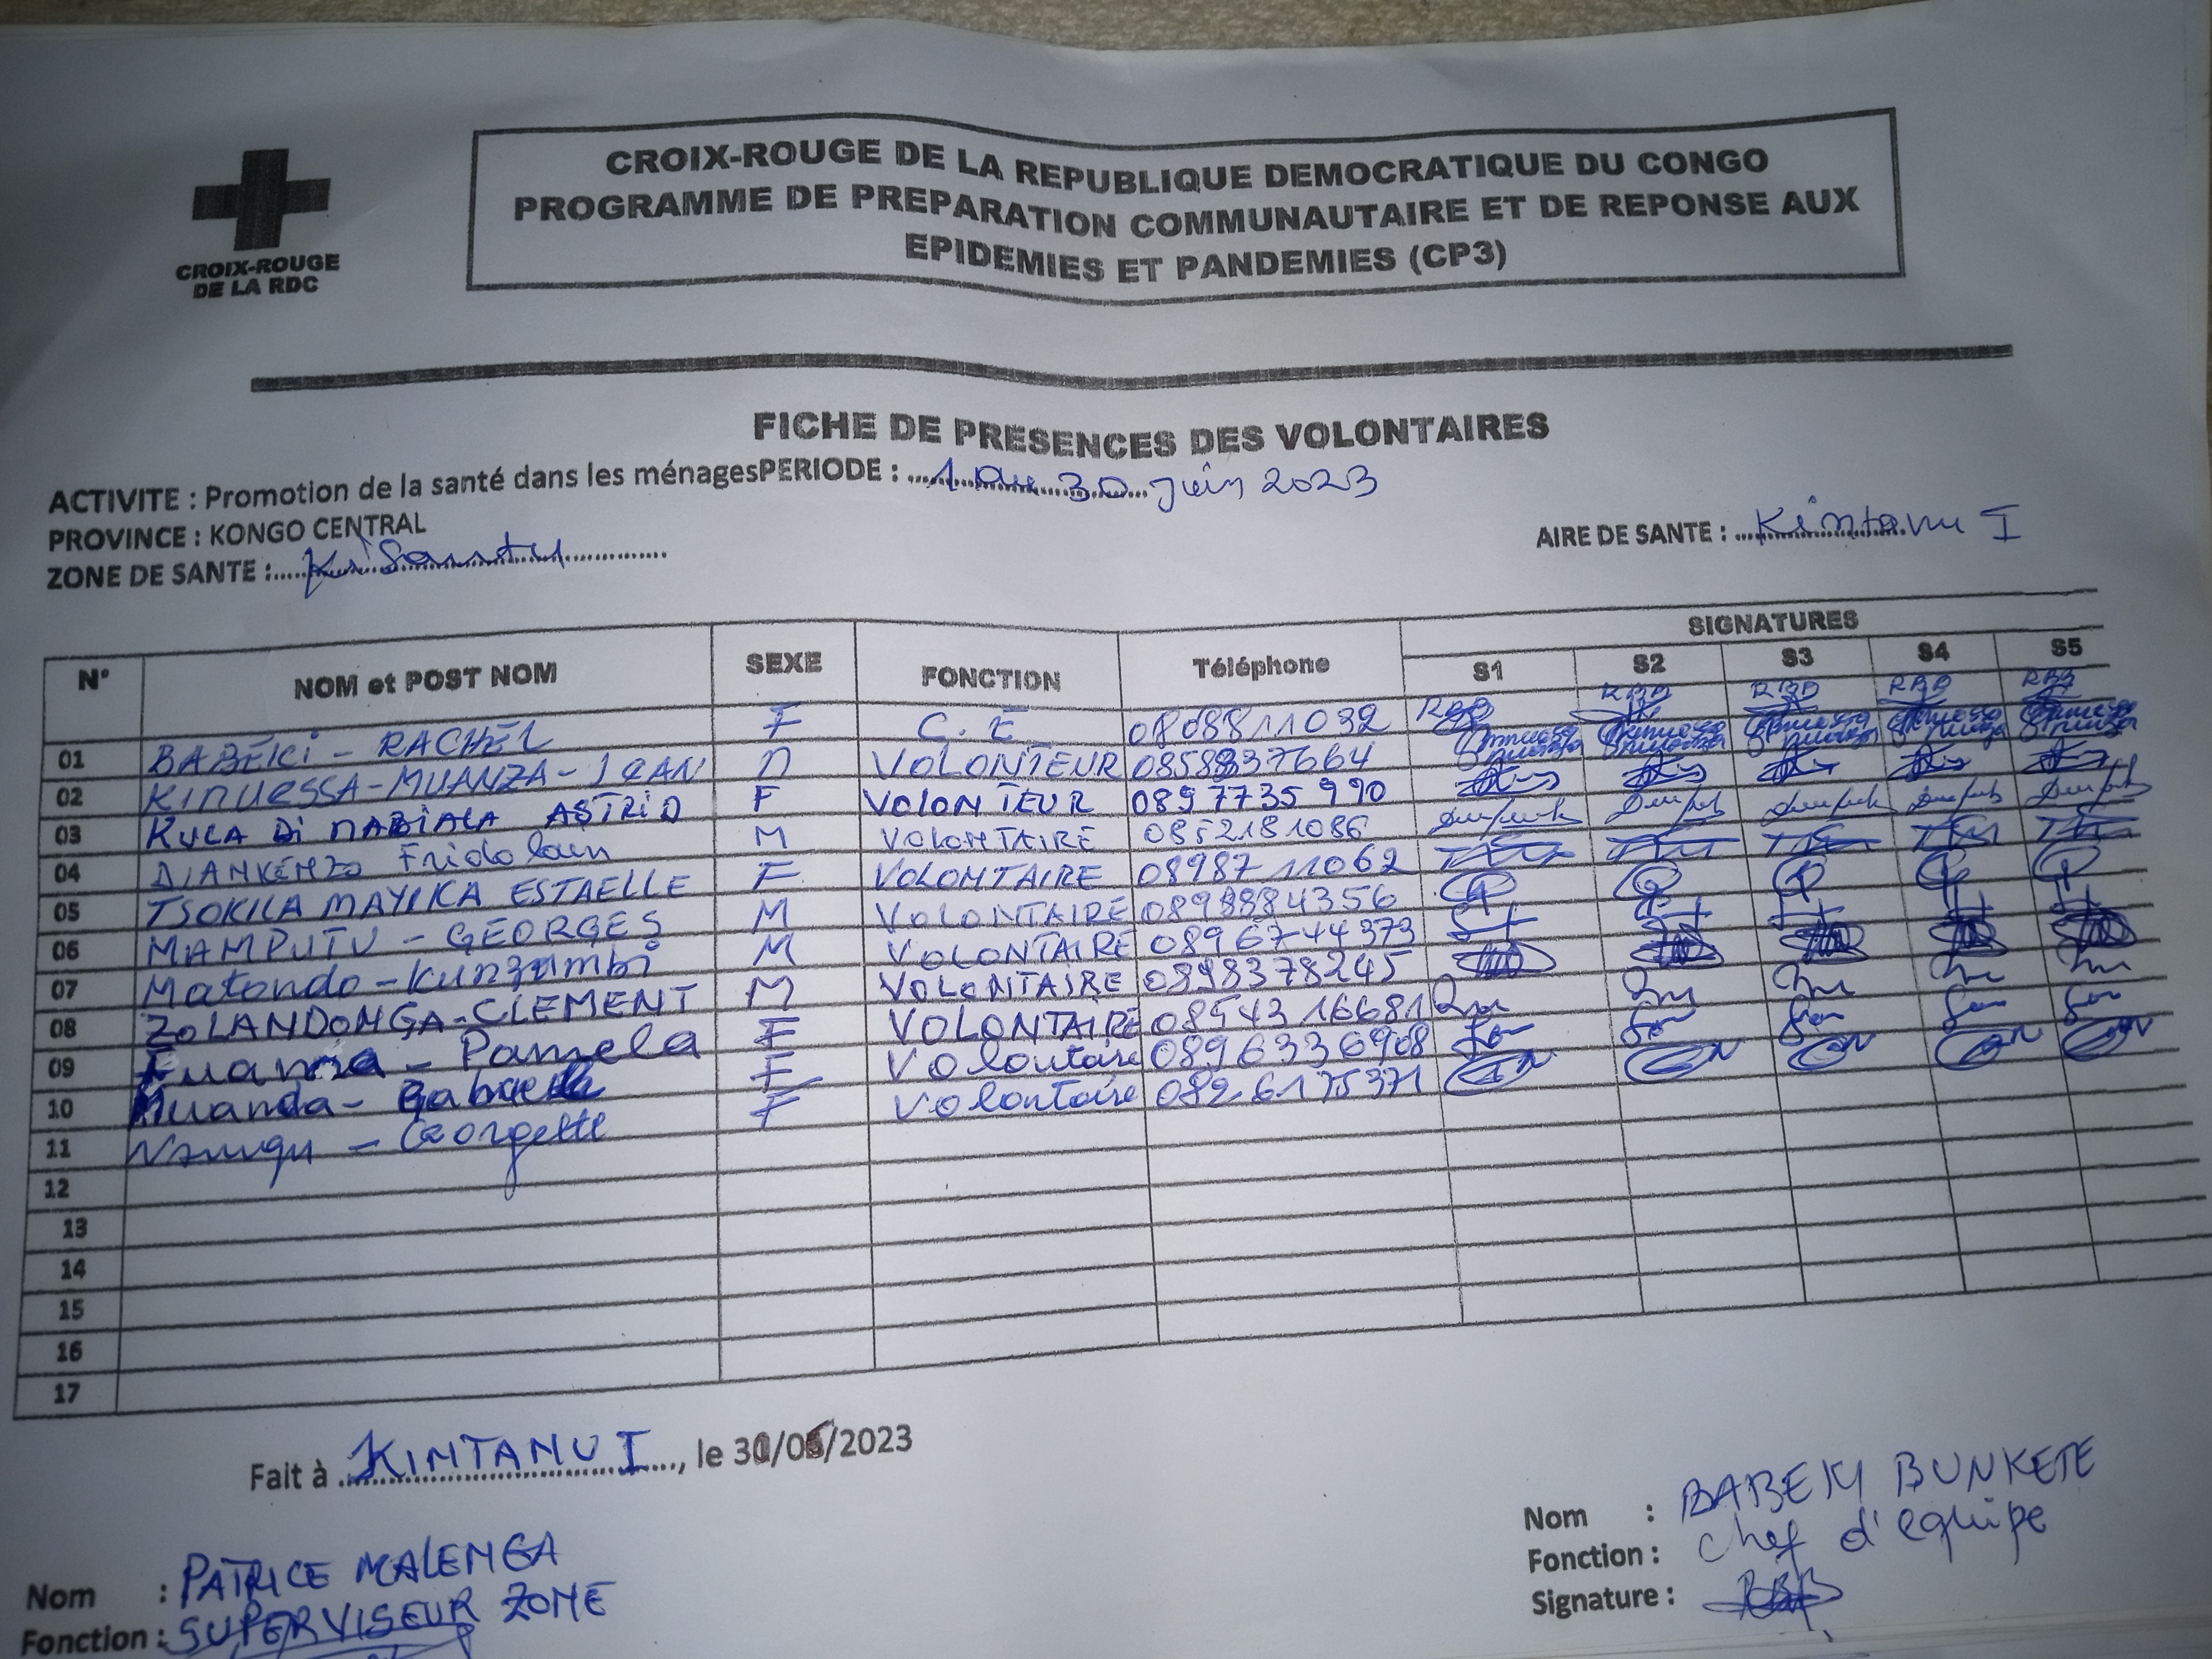 CROIX-ROUGE DE LA REPUBLIQUE DEMOCRATIQUE DU CONGO
PROGRAMME DE PREPARATION COMMUNAUTAIRE ET DE REPONSE AUX
EPIDEMIES ET PANDEMIES (CP3)
CROIX-ROUGE
DE LA RDC
FICHE DE PRESENCES DES VOLONTAIRES
ACTIVITE : Promotion de la santé dans les ménagesPERIODE : 1 au 30 Juin 2023
PROVINCE : KONGO CENTRAL
AIRE DE SANTE : Kintanu I
ZONE DE SANTE : Kisantu
N° NOM et POST NOM SEXE FONCTION Téléphone SIGNATURES
S1 S2 S3 S4 S5
01 BABEKI - RACHEL F C.E 0808811032 RBB RBB RBB RBB RBB
02 KINUESSA-MUANZA-JEAN M VOLONTEUR 0858937664
03 KULA DI MABIALA ASTRID F VOLONTEUR 0897735990
04 DIANKENZO Fridolain M VOLONTAIRE 0852181086
05 TSOKILA MAYIKA ESTAELLE F VOLONTAIRE 0898711062
06 MAMPUTU - GEORGES M VOLONTAIRE 0898884356
07 Matondo - Kunzumbi M VOLONTAIRE 0896744373
08 ZOLANDONGA-CLEMENT M VOLONTAIRE 0898378245
09 Fuanna - Pamela F VOLONTAIRE 0854316681
10 Muanda - Gabrielle F Volontaire 0896336908
11 Georgette F Volontaire 0826175371
12
13
14
15
16
17
Fait à KINTANU I, le 30/06/2023
Nom : BABEKI BUNKETE
Fonction : Chef d'equipe
Signature : BBB
Nom : PATRICE MALENGA
Fonction : SUPERVISEUR ZONE